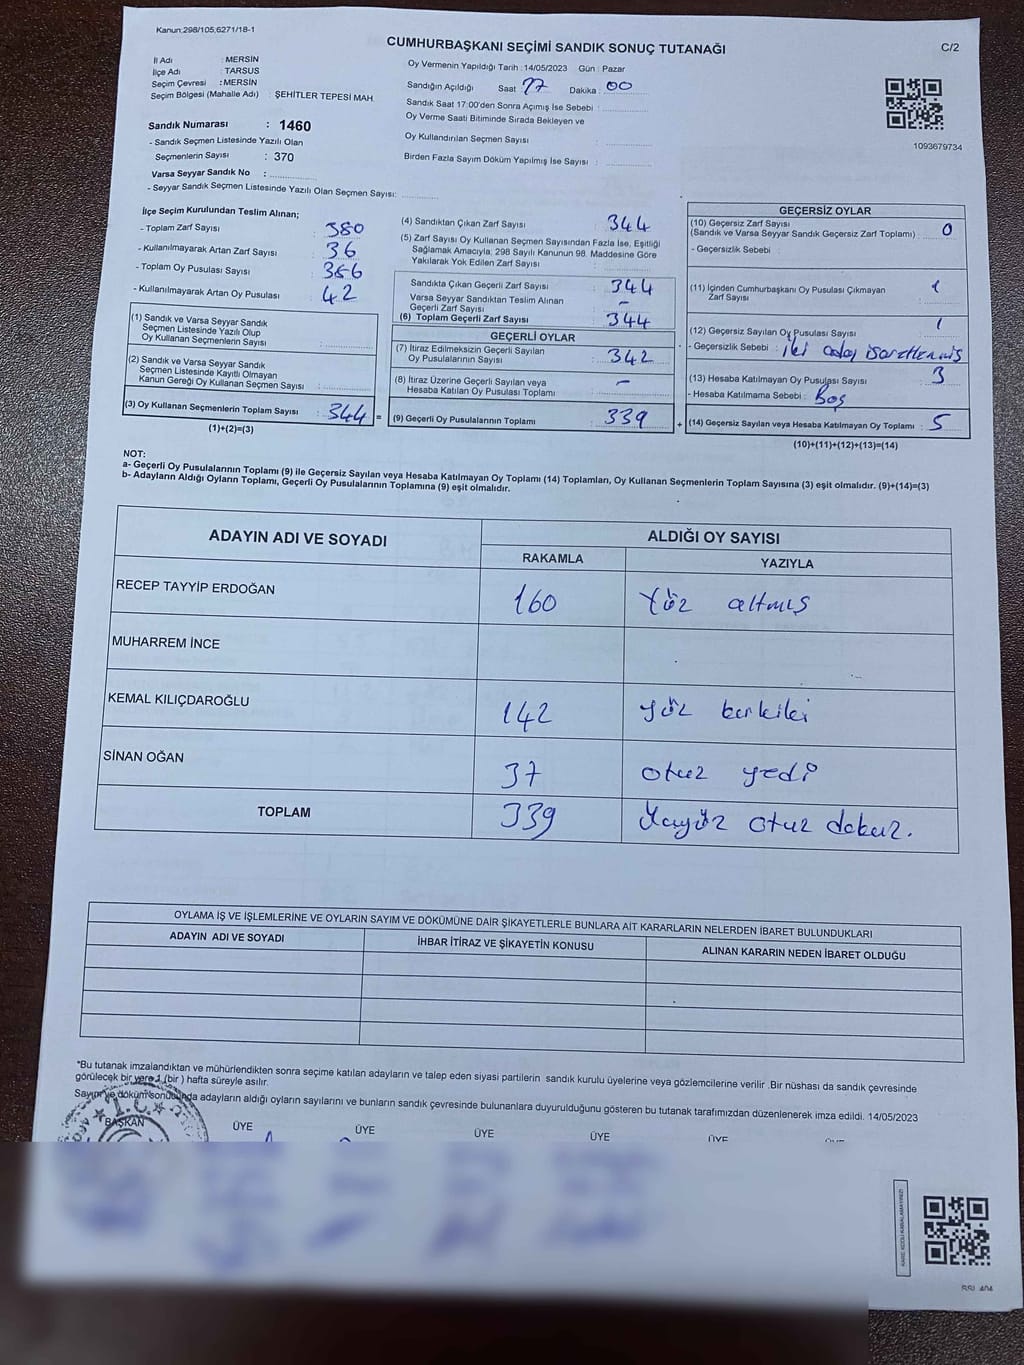 Kanun:298/105,6271/18-1
CUMHURBAŞKANI SEÇİMİ SANDIK SONUÇ TUTANAĞI
C/2
İl Adı : MERSİN
İlçe Adı : TARSUS
Seçim Çevresi : MERSİN
Seçim Bölgesi (Mahalle Adı) : ŞEHİTLER TEPESİ MAH.
Sandık Numarası : 1460
- Sandık Seçmen Listesinde Yazılı Olan
Seçmenlerin Sayısı : 370
Varsa Seyyar Sandık No :
- Seyyar Sandık Seçmen Listesinde Yazılı Olan Seçmen Sayısı:
Oy Vermenin Yapıldığı Tarih :14/05/2023 Gün : Pazar
Sandığın Açıldığı Saat 17 Dakika : 00
Sandık Saat 17:00'den Sonra Açımış İse Sebebi :
Oy Verme Saati Bitiminde Sırada Bekleyen ve
Oy Kullandırılan Seçmen Sayısı :
Birden Fazla Sayım Döküm Yapılmış İse Sayısı :
1093679734
İlçe Seçim Kurulundan Teslim Alınan;
- Toplam Zarf Sayısı : 380
- Kullanılmayarak Artan Zarf Sayısı : 36
- Toplam Oy Pusulası Sayısı : 386
- Kullanılmayarak Artan Oy Pusulası : 42
(1) Sandık ve Varsa Seyyar Sandık
Seçmen Listesinde Yazılı Olup
Oy Kullanan Seçmenlerin Sayısı :
(2) Sandık ve Varsa Seyyar Sandık
Seçmen Listesinde Kayıtlı Olmayan
Kanun Gereği Oy Kullanan Seçmen Sayısı :
(3) Oy Kullanan Seçmenlerin Toplam Sayısı : 344 =
(1)+(2)=(3)
(4) Sandıktan Çıkan Zarf Sayısı : 344
(5) Zarf Sayısı Oy Kullanan Seçmen Sayısından Fazla İse, Eşitliği
Sağlamak Amacıyla, 298 Sayılı Kanunun 98. Maddesine Göre
Yakılarak Yok Edilen Zarf Sayısı :
Sandıkta Çıkan Geçerli Zarf Sayısı : 344
Varsa Seyyar Sandıktan Teslim Alınan
Geçerli Zarf Sayısı : -
(6) Toplam Geçerli Zarf Sayısı : 344
GEÇERLİ OYLAR
(7) İtiraz Edilmeksizin Geçerli Sayılan
Oy Pusulalarının Sayısı : 342
(8) İtiraz Üzerine Geçerli Sayılan veya
Hesaba Katılan Oy Pusulası Toplamı : -
(9) Geçerli Oy Pusulalarının Toplamı : 339 +
GEÇERSİZ OYLAR
(10) Geçersiz Zarf Sayısı
(Sandık ve Varsa Seyyar Sandık Geçersiz Zarf Toplamı) : 0
- Geçersizlik Sebebi :
(11) İçinden Cumhurbaşkanı Oy Pusulası Çıkmayan
Zarf Sayısı : 1
(12) Geçersiz Sayılan Oy Pusulası Sayısı : 1
- Geçersizlik Sebebi : iki aday işaretlenmiş
(13) Hesaba Katılmayan Oy Pusulası Sayısı : 3
- Hesaba Katılmama Sebebi : Boş
(14) Geçersiz Sayılan veya Hesaba Katılmayan Oy Toplamı : 5
(10)+(11)+(12)+(13)=(14)
NOT:
a- Geçerli Oy Pusulalarının Toplamı (9) ile Geçersiz Sayılan veya Hesaba Katılmayan Oy Toplamı (14) Toplamları, Oy Kullanan Seçmenlerin Toplam Sayısına (3) eşit olmalıdır. (9)+(14)=(3)
b- Adayların Aldığı Oyların Toplamı, Geçerli Oy Pusulalarının Toplamına (9) eşit olmalıdır.
ADAYIN ADI VE SOYADI
ALDIĞI OY SAYISI
RAKAMLA YAZIYLA
RECEP TAYYİP ERDOĞAN 160 Yüz altmış
MUHARREM İNCE
KEMAL KILIÇDAROĞLU 142 yüz kırkiki
SİNAN OĞAN 37 otuz yedi
TOPLAM 339 otuz dokuz.
OYLAMA İŞ VE İŞLEMLERİNE VE OYLARIN SAYIM VE DÖKÜMÜNE DAİR ŞİKAYETLERLE BUNLARA AİT KARARLARIN NELERDEN İBARET BULUNDUKLARI
ADAYIN ADI VE SOYADI İHBAR İTİRAZ VE ŞİKAYETİN KONUSU ALINAN KARARIN NEDEN İBARET OLDUĞU
*Bu tutanak imzalandıktan ve mühürlendikten sonra seçime katılan adayların ve talep eden siyasi partilerin sandık kurulu üyelerine veya gözlemcilerine verilir .Bir nüshası da sandık çevresinde
görülecek bir yere 1 (bir ) hafta süreyle asılır.
Sayım ve döküm sonucunda adayların aldığı oyların sayılarını ve bunların sandık çevresinde bulunanlara duyurulduğunu gösteren bu tutanak tarafımızdan düzenlenerek imza edildi. 14/05/2023
T.C.
BAŞKAN ÜYE ÜYE ÜYE ÜYE ÜYE